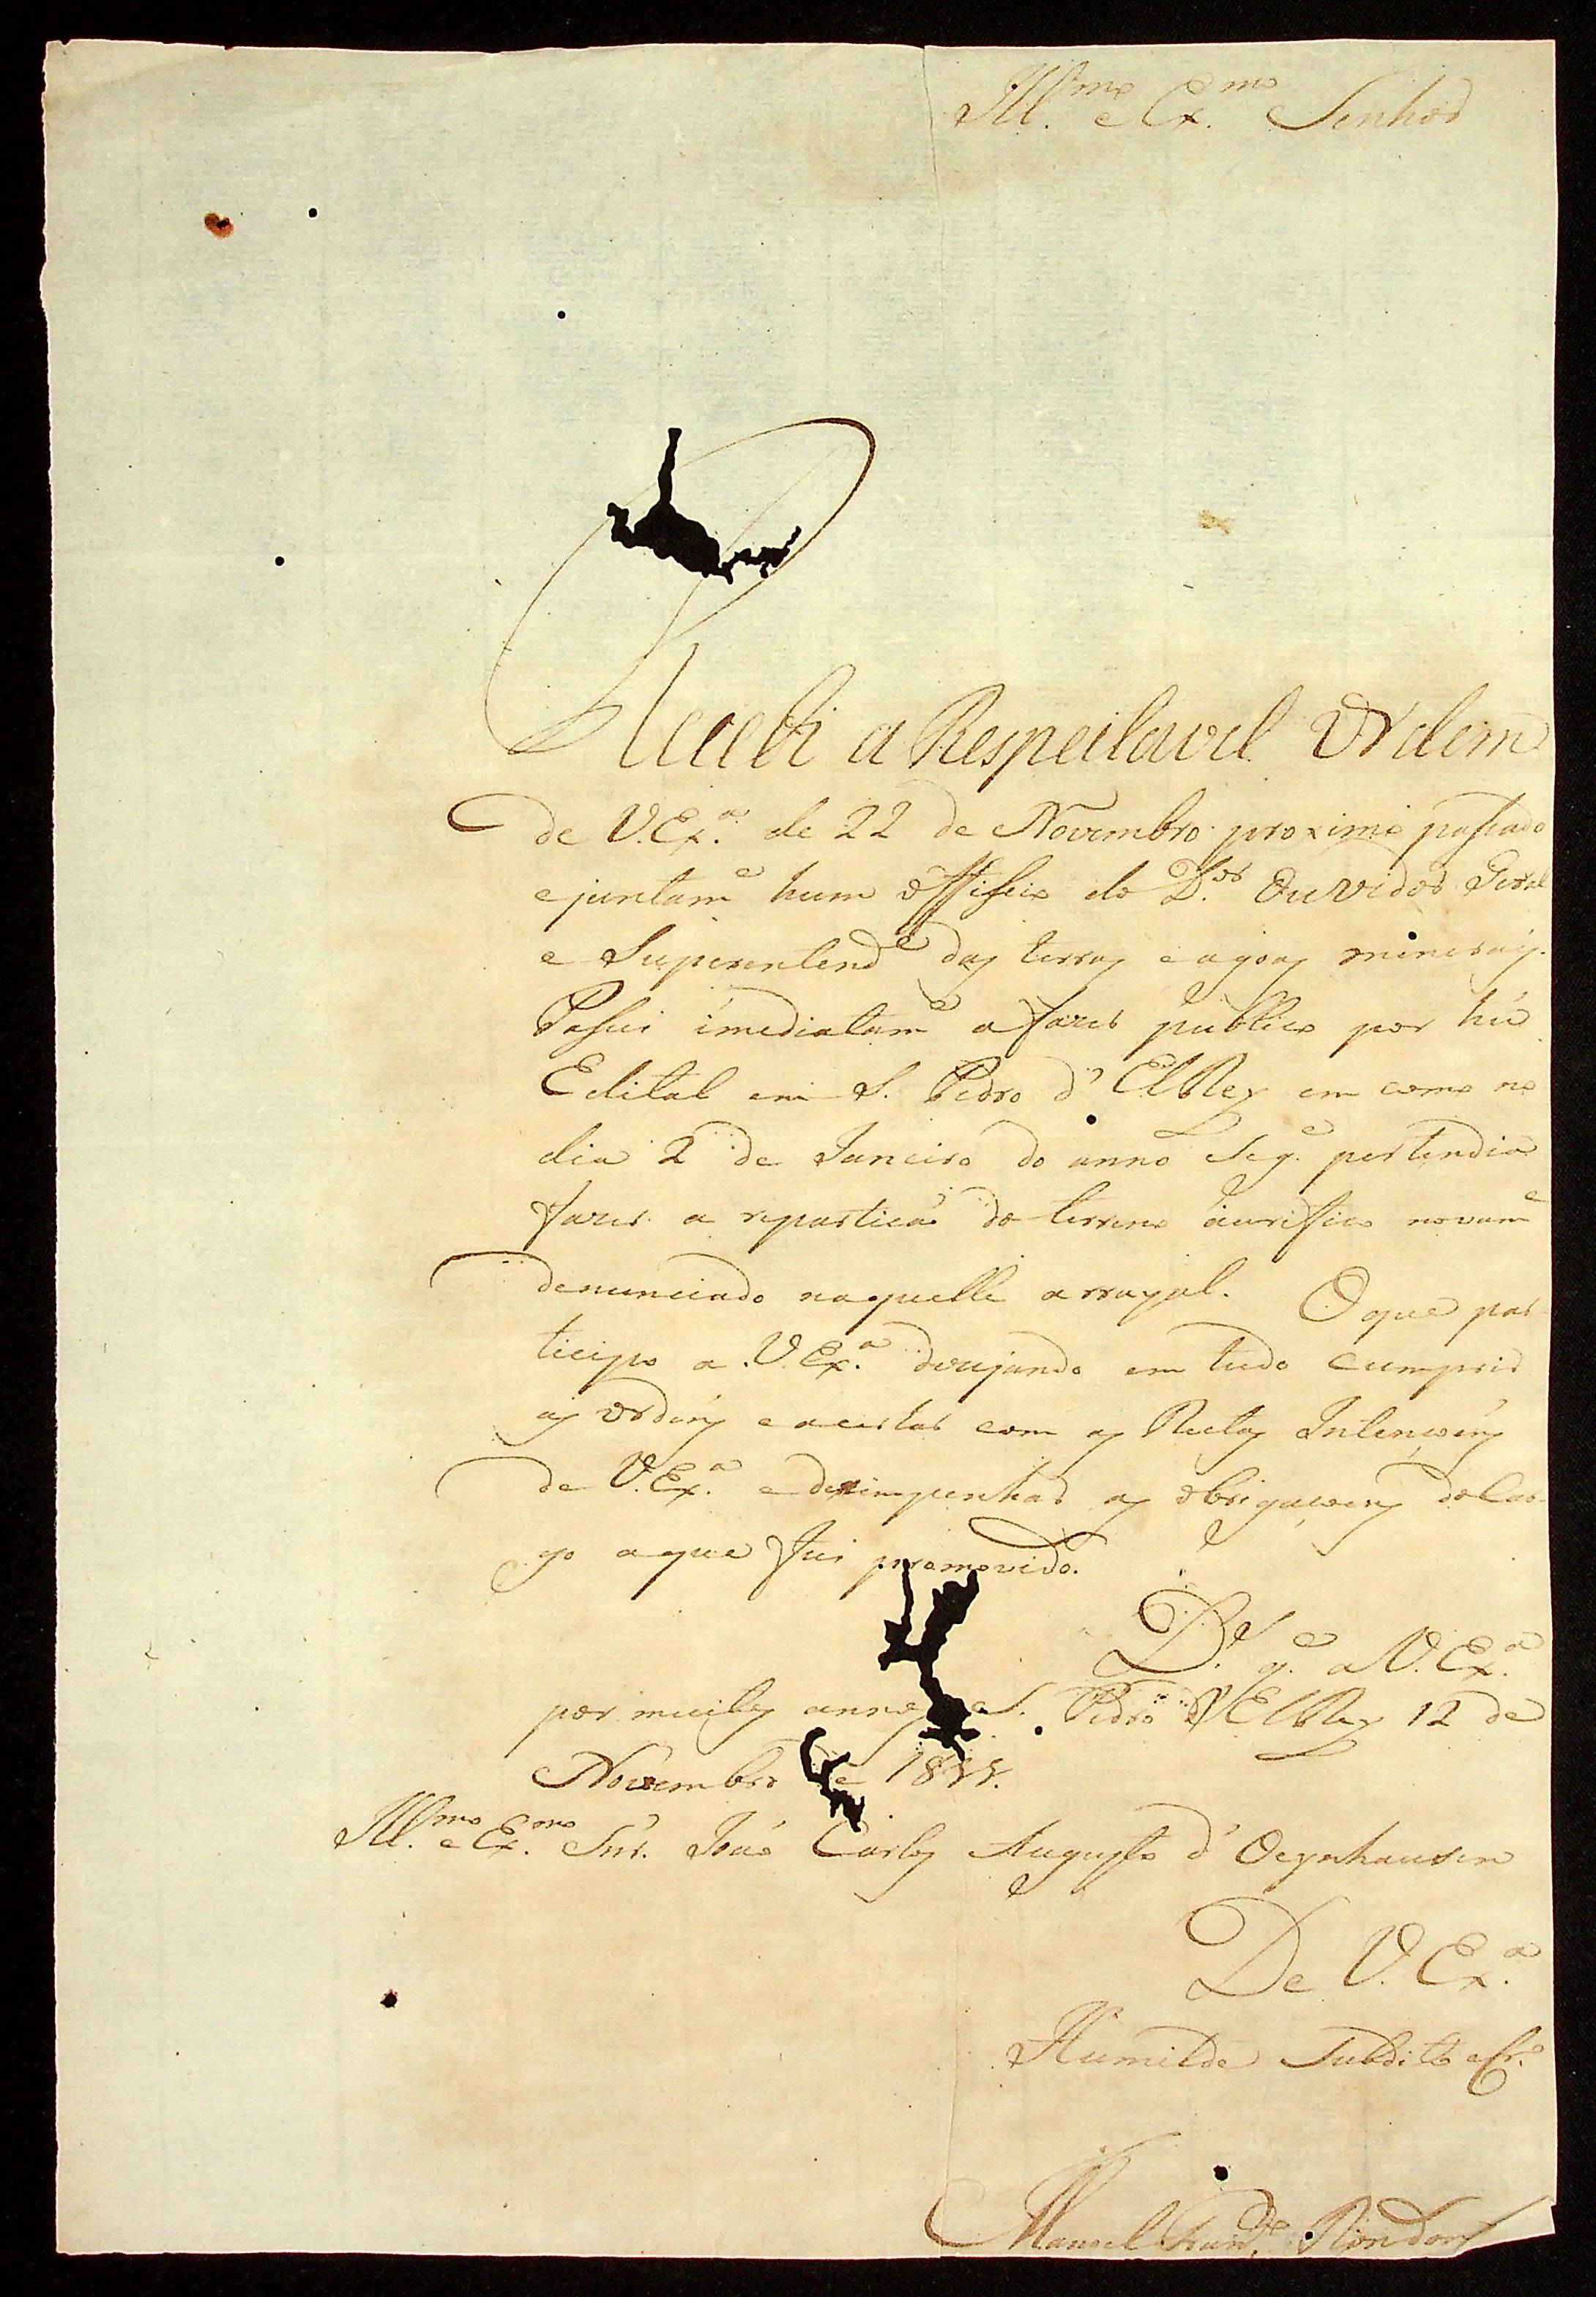 Ill.mo e Ex.mo Senhor
Recebi a Respeitavel Ordem
de V. Ex.a de 22 de Novembro proximo passado
e juntam.e hum officio do D.or Ouvidor Geral
e Superentend.e das terras e agoas mineraes.
Passei imediatam.e a fazer publico por hú
Edital em S. Pedro d' ElRey em como no
dia 2 de Janeiro do anno Seg.e pertendia
fazer a repartição do terreno aurifico novam.e
denunciado naquelle arrayal. O que par-
ticipo a V. Ex.a dezejando em tudo cumprir
as ordens e acertar com as Rectas Intençoens
de V. Ex.a e dezimpenhar as obrigaçoens do Car-
go a que fui promovido.
D.s g.e a V. Ex.a
por muitos annos S. Pedro d' ElRey 12 de
Novembro de 1811.
Ill.mo e Ex.mo Snr. João Carlos Augusto d' Oeynhausen
De V. Ex.a
Humilde Subdito e Cr.o
Manoel Rondon